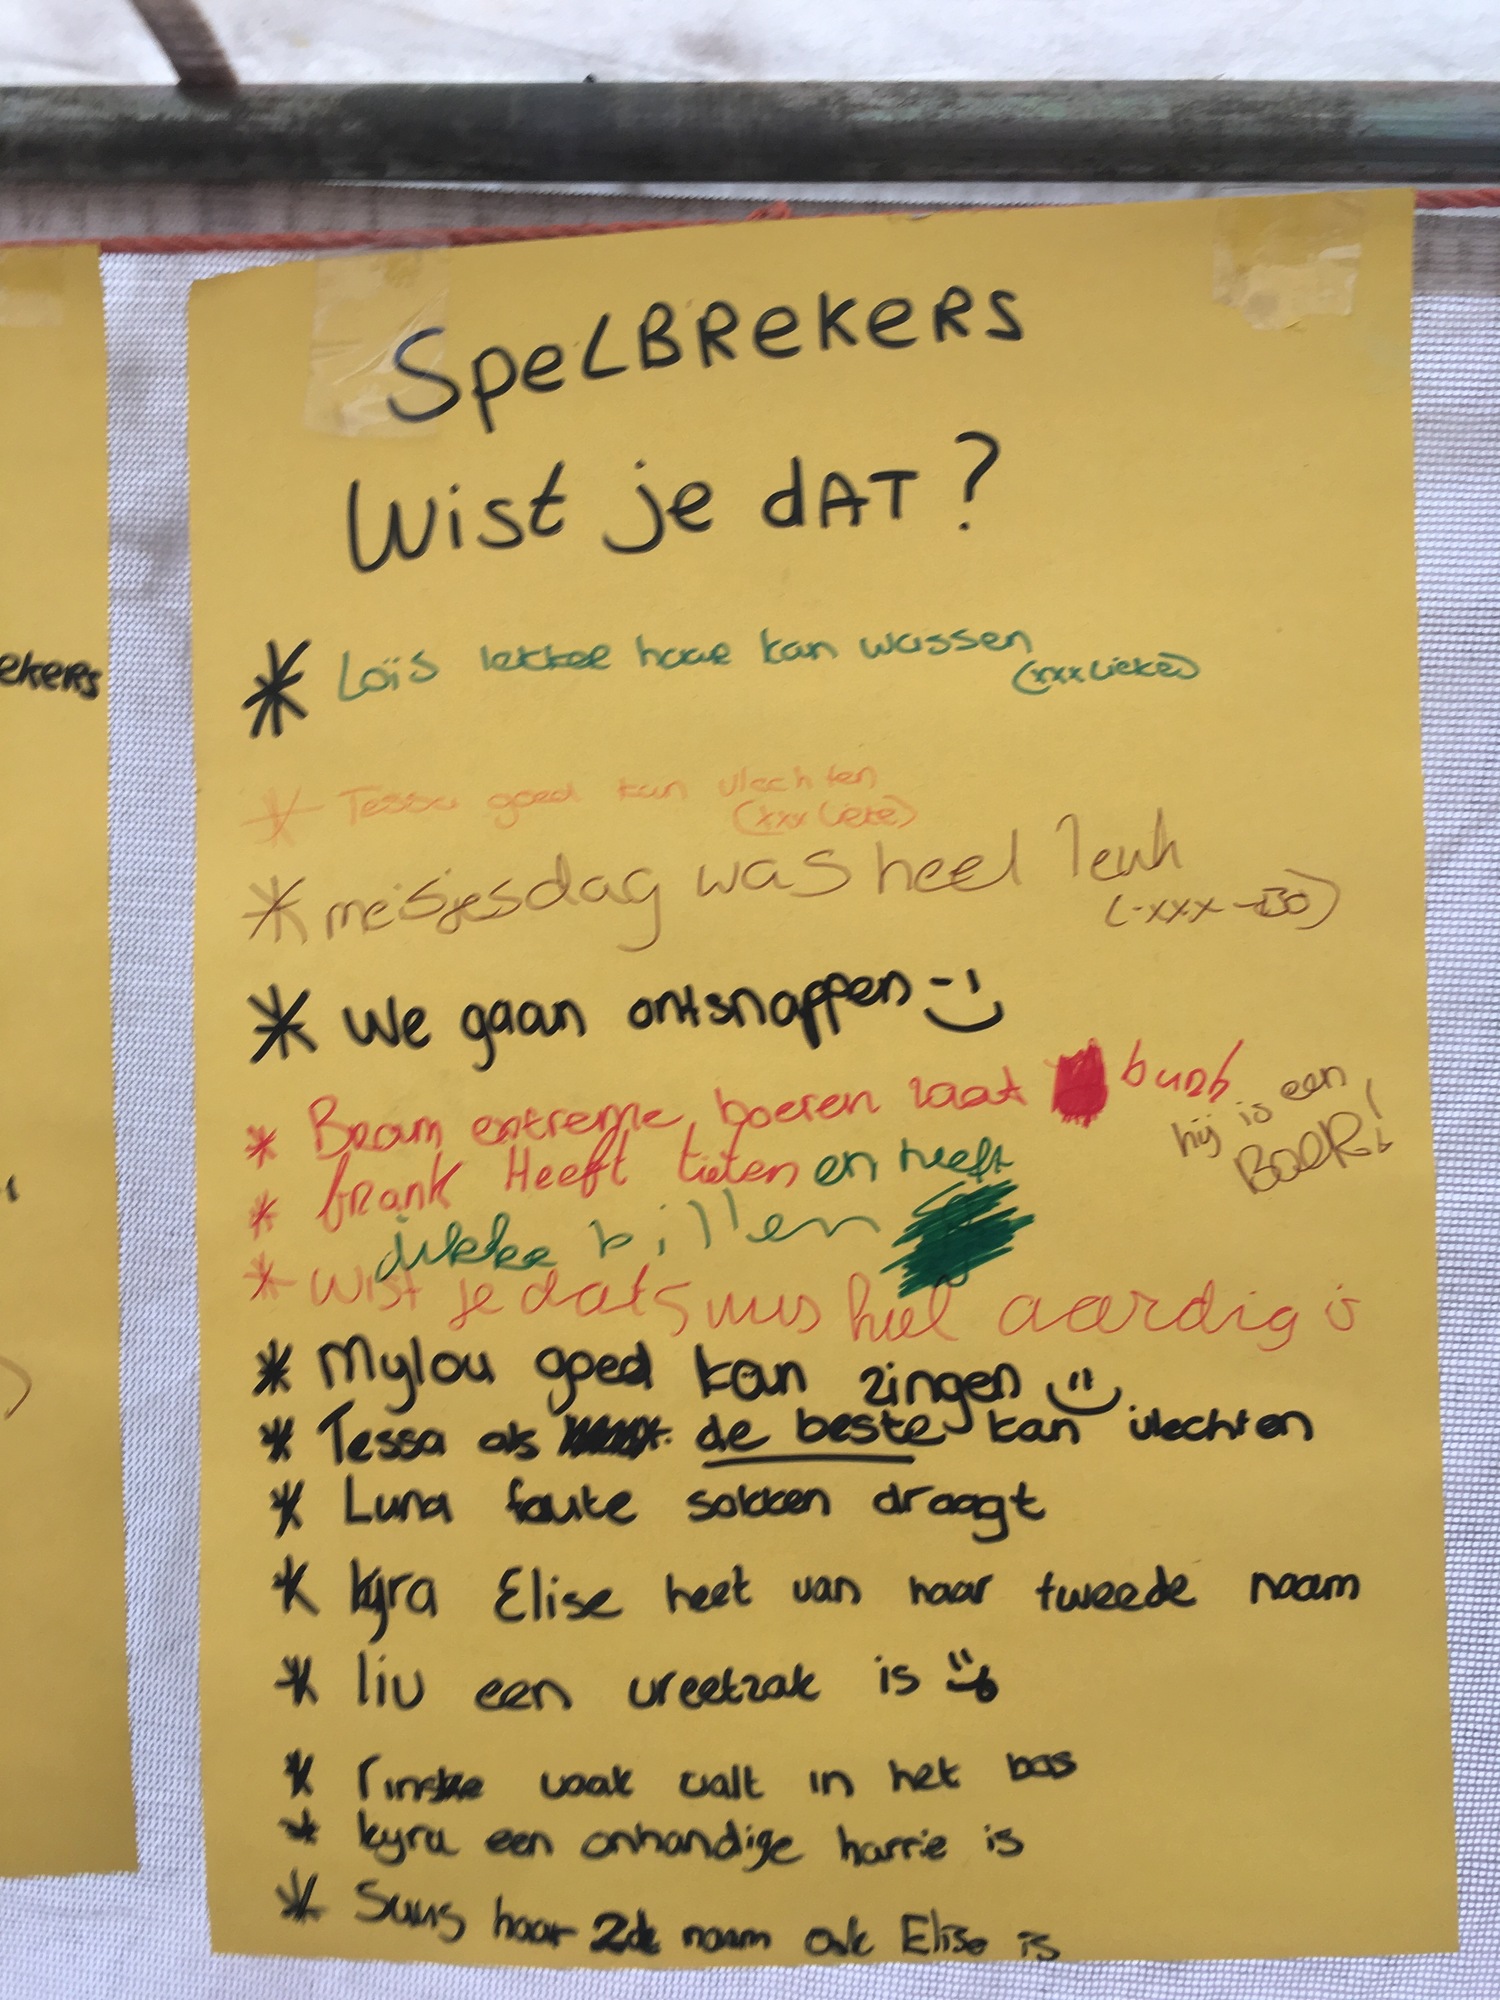 SpeLBRekeRS
Wist je dAT?
* Loïs lekker haar kan wassen
(xxx Lieke)
* Tessa goed kan vlechten
(xxx Lieke)
* meisjesdag was heel leuk
(-xxx-BO)
* We gaan ontsnappen
* Bram extreme boeren laat
hij is een
BoeR!
* frank Heeft tieten en heeft
dikke billen
* Wist je dat suus heel aardig is
* Mylou goed kan zingen
* Tessa als de beste kan vlechten
* Luna foute sokken draagt
* kyra Elise heet van haar tweede naam
* liv een vreetzak is
* rinske vaak valt in het bos
* kyra een onhandige harrie is
* Suus haar 2de naam ook Elise is
ekeRS